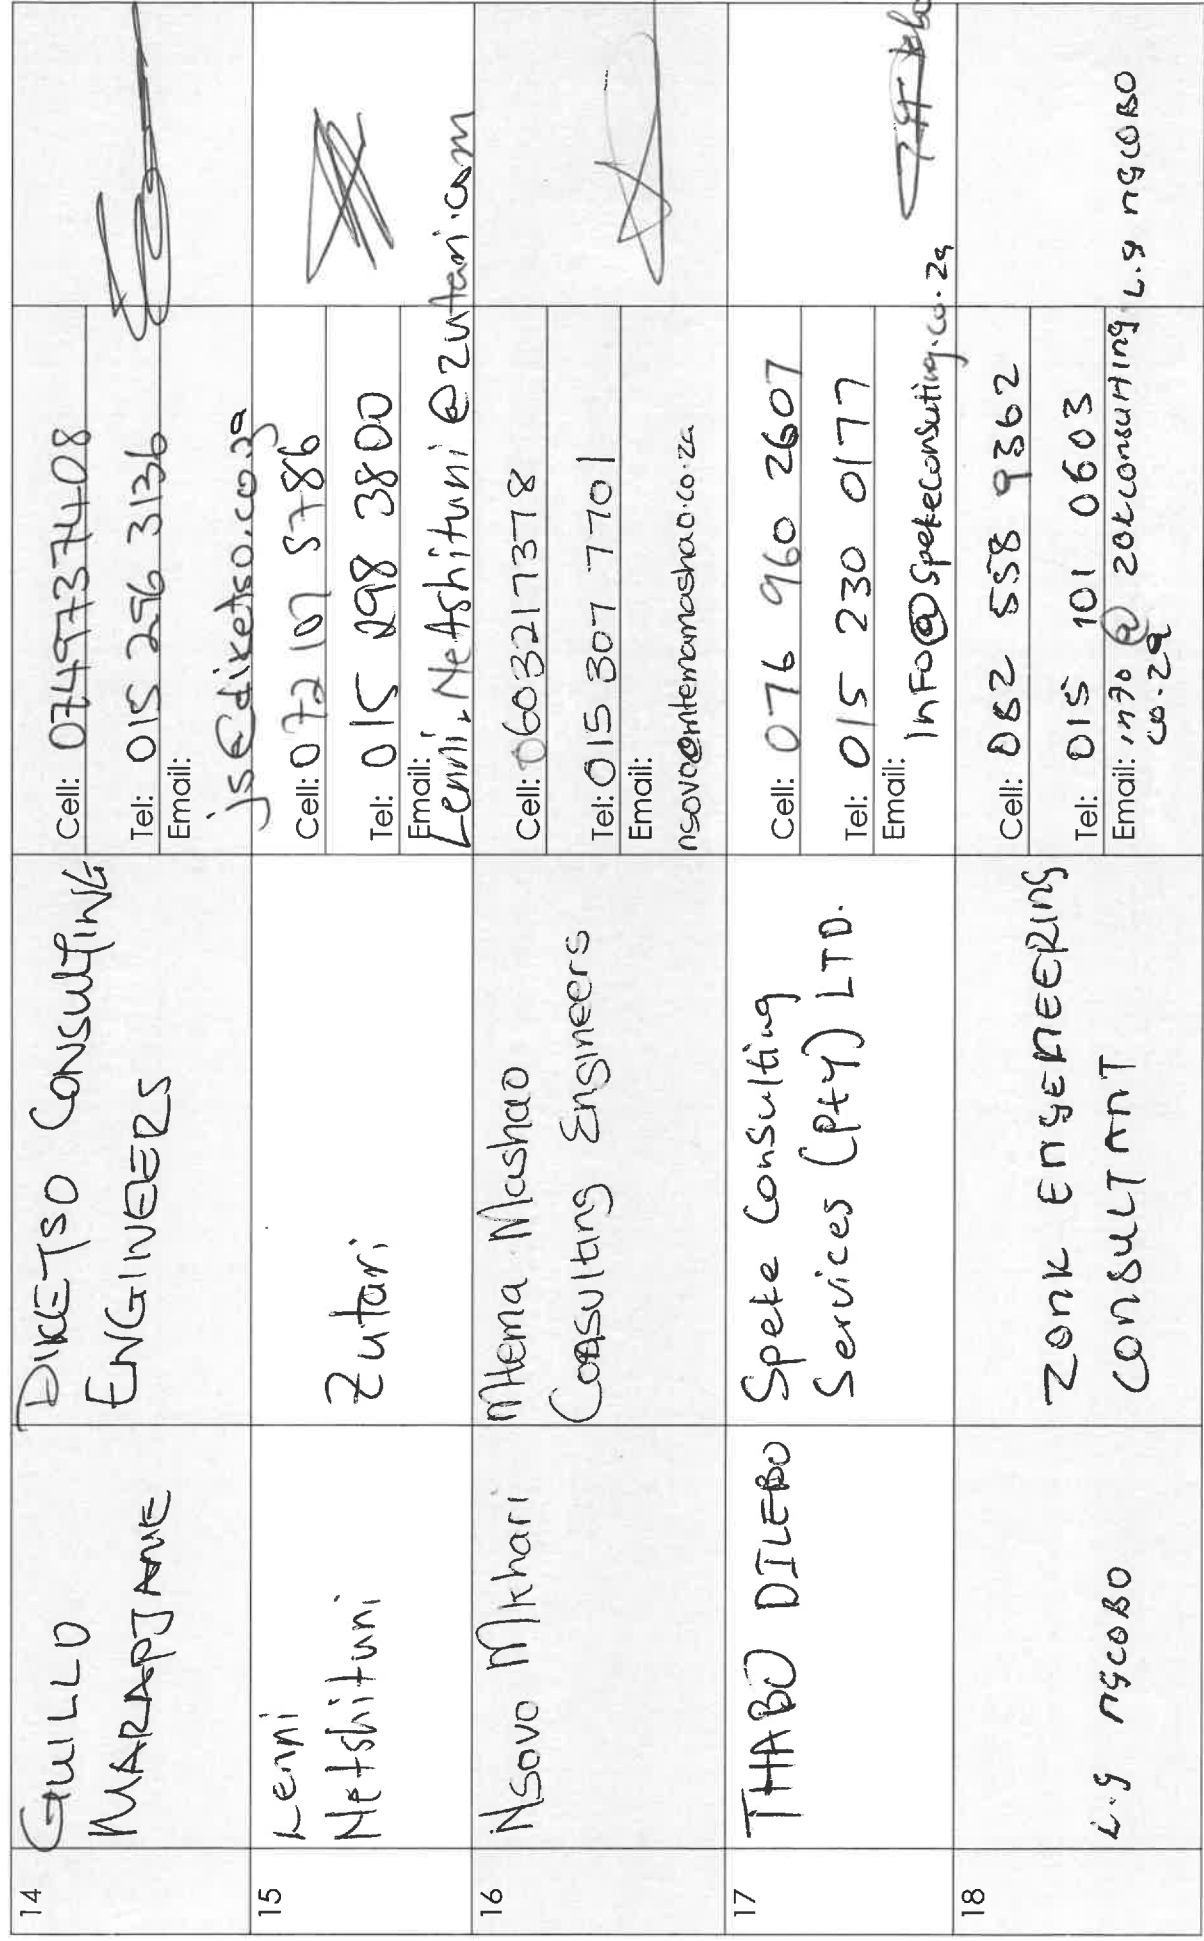 14
GUILLO
MARAPJANE
DIKETSO CONSULTING
ENGINEERS
Cell: 0749737408
Tel: 015 296 3136
Email:
js@diketso.co.za
15
Lenni
Netshituni
Zutari
Cell: 072 107 5786
Tel: 015 298 3800
Email:
Lenni.Netshituni@zutari.com
16
Nsovo Mkhari
Mtema Mashao
Consulting Engineers
Cell: 0603217378
Tel: 015 307 7701
Email:
nsovo@mtemamashao.co.za
17
THABO DILEBO
Speke Consulting
Services (Pty) LTD.
Cell: 076 960 2607
Tel: 015 230 0177
Email:
InFo@Spekeconsuting.co.za
18
L.g ngcoBO
ZONK EngENEERING
CONSULTANT
Cell: 082 558 9362
Tel: 015 101 0603
Email: info@zokconsulting.
co.za
L.g ngcoBO